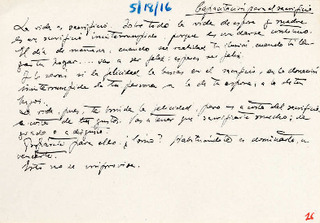 5/8/16 Capacitación para el sacrificio
La vida es sacrificio. Sobre todo la vida de esposa y madre
es un sacrificio ininterrumpido porque es un darse continuo.
El día de mañana, cuando sea realidad tu ilusión, cuando tú
tu hogar... vas a ser feliz: esperas ser feliz.
la felicidad, la en el sacrificio, en la donación
ininterrumpida de tu persona a la de tu esposo, a la de tus
hijos.
La vida, pues, te brinda la felicidad, pero es a costa del sacrificio,
a costa de tus gustos. Vas a tener que sacrificarte mucho; de
grado o a disgusto.
para ello. ¿Cómo? Habituándote a dominarte, a
vencerte.
Esto no se improvisa.
26